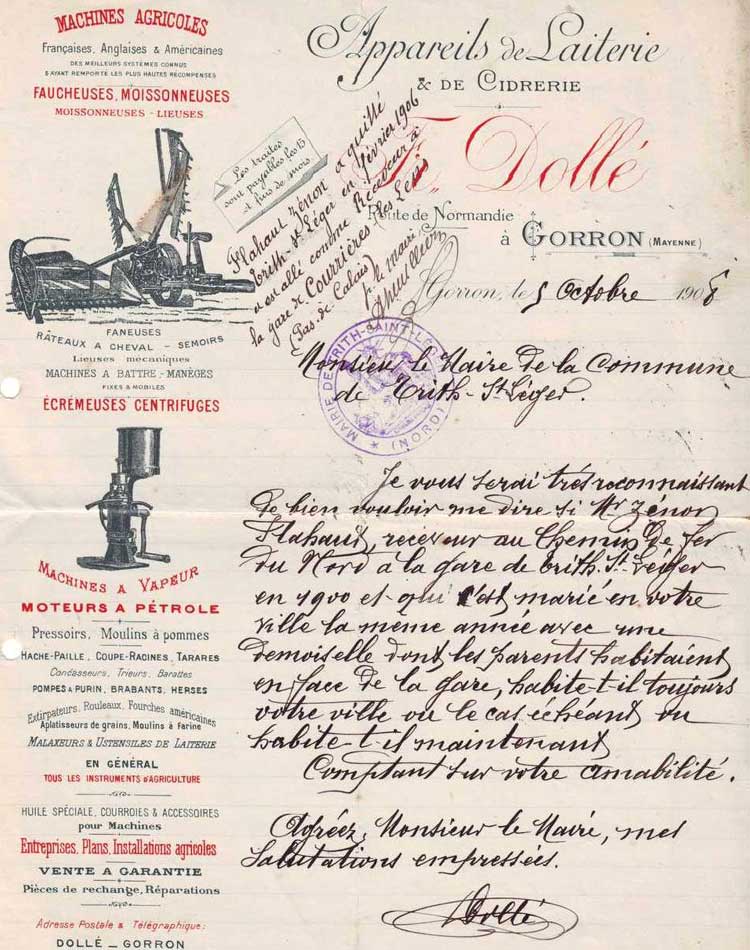 MACHINES AGRICOLES
Françaises, Anglaises & Américaines
DES MEILLEURS SYSTÈMES CONNUS
& AYANT REMPORTÉ LES PLUS HAUTES RÉCOMPENSES
FAUCHEUSES, MOISSONNEUSES
MOISSONNEUSES - LIEUSES
FANEUSES
RÂTEAUX A CHEVAL - SEMOIRS
Lieuses mécaniques
MACHINES A BATTRE - MANÈGES
FIXES & MOBILES
ÉCRÉMEUSES CENTRIFUGES
MACHINES A VAPEUR
MOTEURS A PÉTROLE
Pressoirs, Moulins à pommes
HACHE-PAILLE, COUPE-RACINES, TARARES
Concasseurs, Trieurs, Barattes
POMPES A PURIN, BRABANTS, HERSES
Extirpateurs, Rouleaux, Fourches américaines
Aplatisseurs de grains, Moulins à farine
MALAXEURS & USTENSILES DE LAITERIE
EN GÉNÉRAL
TOUS LES INSTRUMENTS D'AGRICULTURE
HUILE SPÉCIALE, COURROIES & ACCESSOIRES
pour Machines
Entreprises, Plans, Installations agricoles
VENTE A GARANTIE
Pièces de rechange, Réparations
Adresse Postale & Télégraphique:
DOLLÉ _ GORRON
Appareils de Laiterie
& DE CIDRERIE
F. Dollé
Route de Normandie
à GORRON (MAYENNE)
Les traites
sont payables les 15
et fins de mois.
Flahaut Zénon a quitté
Trith-St-Léger en février 1906
et est allé comme Receveur à
la gare de Courrières (les Lens
(Pas de Calais)
p. le maire,
MAIRIE DE TRITH-SAINT-LÉGER (NORD)
Gorron, le 5 Octobre 1908
Monsieur le Maire de la Commune
de Trith-St-Léger.
Je vous serai très reconnaissant
de bien vouloir me dire si Mr Zénon
Flahaut, receveur au Chemin de fer
du Nord à la gare de Trith-St-Léger
en 1900 et qui s'est marié en votre
ville la même année avec une
demoiselle dont les parents habitaient
en face de la gare, habite-t-il toujours
votre ville ou le cas échéant ou
habite-t-il maintenant
Comptant sur votre amabilité.
Agréez, Monsieur le Maire, mes
salutations empressées.
Dollé